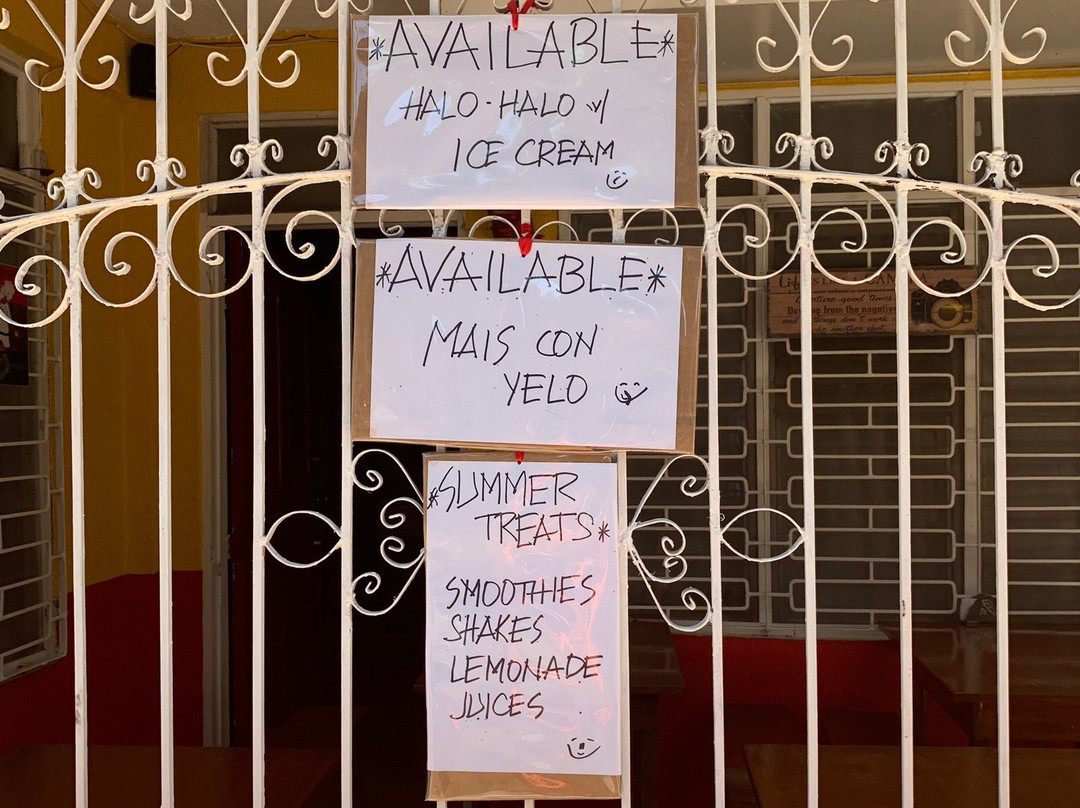 *AVAILABLE*
HALO-HALO w/
ICE CREAM
*AVAILABLE*
MAIS CON
YELO
*SUMMER
TREATS*
SMOOTHIES
SHAKES
LEMONADE
JUICES
good times
Develop from the negative
things don't work
another shot